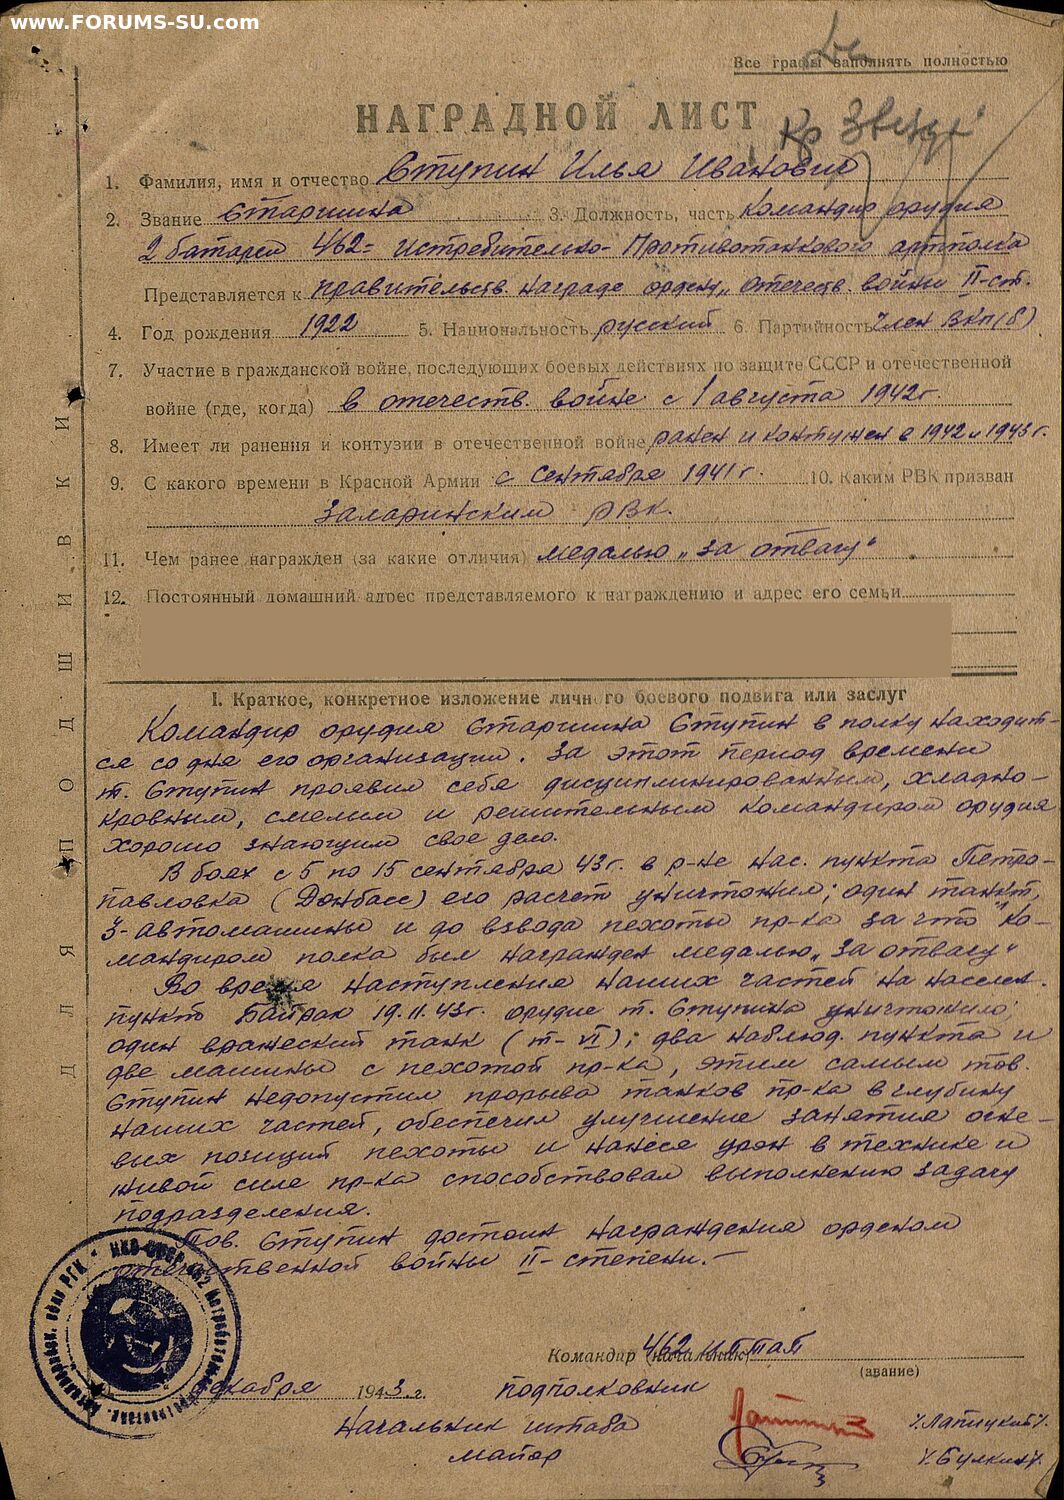 www.FORUMS-SU.com
Все графы заполнять полностью
НАГРАДНОЙ ЛИСТ
Кр Звезды
1. Фамилия, имя и отчество Ступин Илья Иванович
2. Звание Старшина 3. Должность, часть Командир орудия
2 батареи 462= Истребительно-Противотанкового артполка
Представляется к правительств. награде ордену „Отечеств. войны II-ст.
4. Год рождения 1922 5. Национальность русский 6. Партийность член ВКП(б)
7. Участие в гражданской войне, последующих боевых действиях по защите СССР и отечественной
войне (где, когда) в отечеств. войне с 1 августа 1942г.
8. Имеет ли ранения и контузии в отечественной войне ранен и контужен в 1942 и 1943г.
9. С какого времени в Красной Армии с сентября 1941г. 10. Каким РВК призван
Заларинским РВК.
11. Чем ранее награжден (за какие отличия) медалью „за отвагу"
12. Постоянный домашний адрес представляемого к награждению и адрес его семьи
I. Краткое, конкретное изложение личного боевого подвига или заслуг
Командир орудия Старшина Ступин в полку находит-
ся со дня его организации. За этот период времени
т. Ступин проявил себя дисциплинированным, хладно-
кровным, смелым и решительным командиром орудия
хорошо знающим свое дело.
В боях с 5 по 15 сентября 43г. в р-не нас. пункта Петро-
павловка (Донбасс) его расчет уничтожил; один танк,
3-автомашины и до взвода пехоты пр-ка за что Ко-
мандиром полка был награжден медалью „за отвагу"
Во время наступления наших частей на населен.
пункт Байрак 19.11.43г. орудие т. Ступина уничтожило;
один вражеский танк (т-VI); два наблюд. пункта и
две машины с пехотой пр-ка, этим самым тов.
Ступин недопустил прорыва танков пр-ка в глубину
наших частей, обеспечил улучшение занятия огне-
вых позиций пехоты и нанеся урон в технике и
живой силе пр-ка способствовал выполнению задачу
подразделения.
Тов. Ступин достоин награждения орденом
отечественной войны II-степени.-
Командир (начальник) 462 иптап
(звание)
декабря 1943 г. подполковник
/Лапицкий/.
Начальник штаба
майор
/Булкин/.
ДЛЯ ПОДШИВКИ